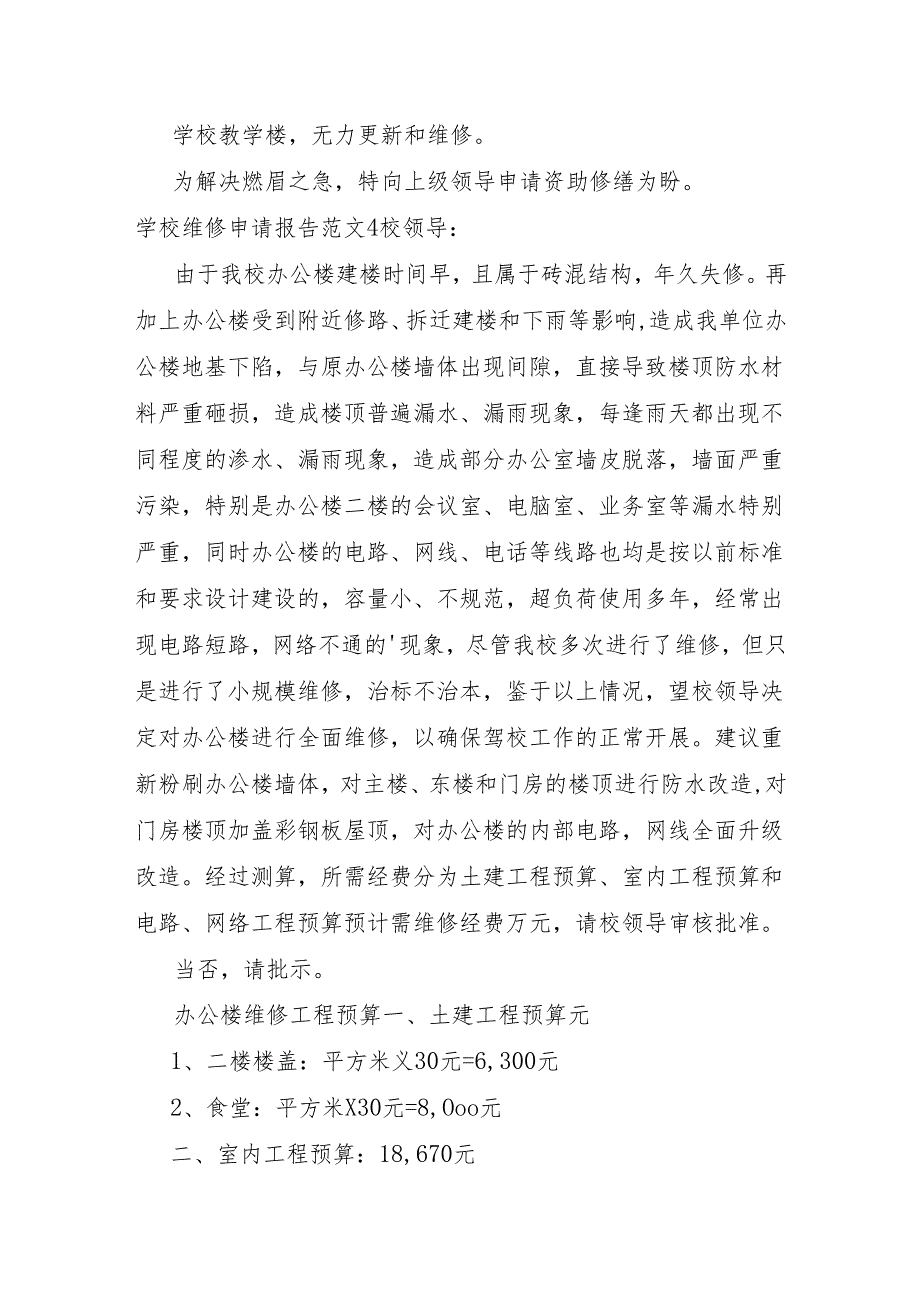 学校教学楼，无力更新和维修。
为解决燃眉之急，特向上级领导申请资助修缮为盼。
学校维修申请报告范文4校领导：
由于我校办公楼建楼时间早，且属于砖混结构，年久失修。再
加上办公楼受到附近修路、拆迁建楼和下雨等影响,造成我单位办
公楼地基下陷，与原办公楼墙体出现间隙，直接导致楼顶防水材
料严重砸损，造成楼顶普遍漏水、漏雨现象，每逢雨天都出现不
同程度的渗水、漏雨现象，造成部分办公室墙皮脱落，墙面严重
污染，特别是办公楼二楼的会议室、电脑室、业务室等漏水特别
严重，同时办公楼的电路、网线、电话等线路也均是按以前标准
和要求设计建设的，容量小、不规范，超负荷使用多年，经常出
现电路短路，网络不通的'现象，尽管我校多次进行了维修，但只
是进行了小规模维修，治标不治本，鉴于以上情况，望校领导决
定对办公楼进行全面维修，以确保驾校工作的正常开展。建议重
新粉刷办公楼墙体，对主楼、东楼和门房的楼顶进行防水改造,对
门房楼顶加盖彩钢板屋顶，对办公楼的内部电路，网线全面升级
改造。经过测算，所需经费分为土建工程预算、室内工程预算和
电路、网络工程预算预计需维修经费万元，请校领导审核批准。
当否，请批示。
办公楼维修工程预算一、土建工程预算元
1、二楼楼盖：平方米义30元=6,300元
2、食堂：平方米X30元=8,Ooo元
二、室内工程预算：18,670元